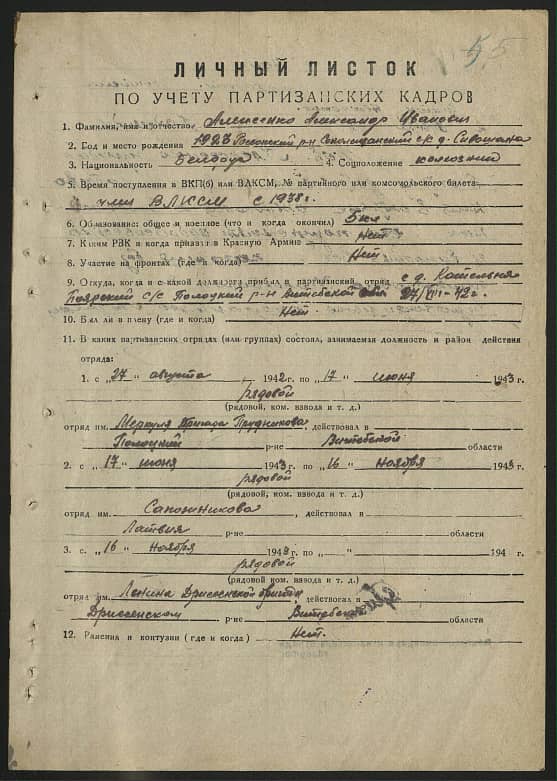 55
ЛИЧНЫЙ ЛИСТОК
ПО УЧЕТУ ПАРТИЗАНСКИХ КАДРОВ
1. Фамилия, имя и отчество Александр Иванович
2. Год и место рождения 1923 р-н с/с д.
3. Национальность Белорус 4. Соцположение колхозник
5. Время поступления в ВКП(б) или ВЛКСМ, № партийного или комсомольского билета
член ВЛКСМ с 1938 г.
6. Образование: общее и военное (что и когда окончил) 5 кл.
7. Каким РВК и когда призван в Красную Армию Нет
8. Участие на фронтах (где и когда) Нет
9. Откуда, когда и с какой должности прибыл в партизанский отряд с д.
с/с Полоцкий р-н Витебской обл 27/VIII-42 г.
10. Был ли в плену (где и когда) Нет.
11. В каких партизанских отрядах (или группах) состоял, занимаемая должность и район действия
отряда:
1. с „27" августа 1942 г. по „17" июня 1943 г.
рядовой
(рядовой, ком. взвода и т. д.)
отряд им. Меркуля Бригада Прудникова, действовал в
Полоцкий р-не Витебской области
2. с „17" июня 1943 г. по „16" ноября 1943 г.
рядовой
(рядовой, ком. взвода и т. д.)
отряд им. Сапожникова, действовал в
Латвия р-не области
3. с „16" ноября 1943 г. по „ " 194 г.
рядовой
(рядовой, ком. взвода и т. д.)
отряд им. Ленина Дриссенской бригады действовал в
Дриссенском р-не Витебской области
12. Ранения и контузии (где и когда) Нет.